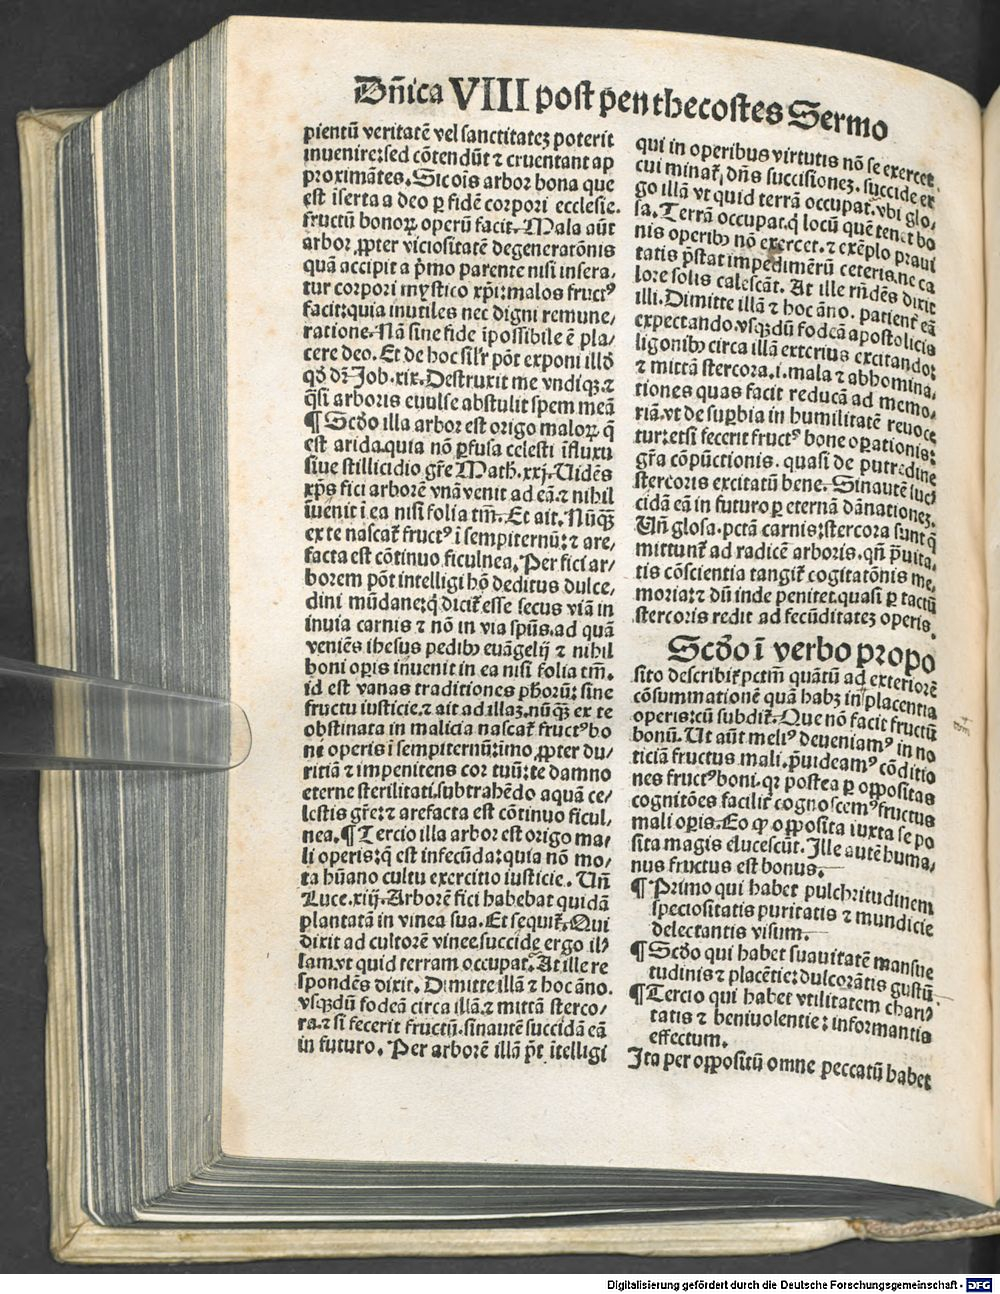 Dñica VIII post penthecostes Sermo
pientũ veritatẽ vel sanctitateʒ poterit
inuenire:sed cõtendũt ⁊ cruentant ap
proximãtes. Sic oĩs arbor bona que
est ĩserta a deo ꝑ fidẽ corpori ecclesie.
fructũ bonoꝝ operũ facit. Mala aũt
arbor ꝓpter viciositatẽ degeneratõnis
quã accipit a pͥmo parente nisi insera-
tur corpori mystico xp̃i:malos fructꝰ
facit:quia inutiles nec digni remune-
ratione. Nã sine fide ĩpossibile ẽ pla-
cere deo. Et de hoc sil'r põt exponi illđ
qđ dr̃ Job.xix. Destruxit me vndiqꝫ.⁊
q̃si arboris euulse abstulit spem meã
¶ Scđo illa arbor est origo maloꝝ q̃
est arida.quia nõ ꝑfusa celesti ĩfluxu
siue stillicidio gr̃e Math.xxj. Uidẽs
xp̃s fici arborẽ vnã venit ad eã.⁊ nihil
ĩuenit ĩ ea nisi folia tm̃. Et ait. Nũqꝫ̃
ex te nascat̃ fructꝰ ĩ sempiternũ:⁊ are-
facta est cõtinuo ficulnea. Per fici ar-
borem põt intelligi hõ deditus dulce-
dini mũdane:q̃ dicit̃ esse secus viã in
inuia carnis ⁊ nõ in via sp̃us.ad quã
veniẽs ihesus pedibꝰ euãgelij ⁊ nihil
boni oꝑis inuenit in ea nisi folia tm̃.
id est vanas traditiones ph̃orũ: sine
fructu iusticie.⁊ ait ad illaʒ.nũqꝫ̃ ex te
obstinata in malicia nascat̃ fructꝰ bo
ni operis ĩ sempiternũ:imo ꝓpter du-
ritiã ⁊ impenitens cor tuũ:te damno
eterne sterilitati.subtrahẽdo aquã ce-
lestis gr̃e:⁊ arefacta est cõtinuo ficul-
nea. ¶ Tercio illa arbor est origo ma-
li operis:q̃ est infecũda:quia nõ mo-
ta hũano cultu exercitio iusticie. Uñ
Luce.xiij. Arborẽ fici habebat quidã
plantatã in vinea sua. Et sequit̃. Qui
dixit ad cultorẽ vinee succide ergo il-
lam.vt quid terram occupat. At ille re
spondẽs dixit. Dimitte illã ⁊ hoc ãno.
vsqꝫdũ fodeã circa illã.⁊ mittã sterco-
ra.⁊ si fecerit fructũ.sinautẽ succidã eã
in futuro. Per arborẽ illã p̃t ĩtelligi
qui in operibus virtutis nõ se exercet.
cui minat̃ dñs succisioneʒ. succide er
go illã vt quid terrã occupat. vbi glo-
sa. Terrã occupat.q̃ locũ quẽ tenet bo
nis operibꝰ nõ exercet.⁊ exẽplo praui
tatis p̃stat impedimẽtũ ceteris.ne ca
lore solis calescãt. At ille rñdẽs dixit
illi. Dimitte illã ⁊ hoc ãno. patient̃ eã
expectando.vsqꝫdũ fodeã apostolicis
ligonibꝰ circa illã exterius excitando:
⁊ mittã stercora.i.mala ⁊ abhomina-
tiones quas facit reducã ad memo-
riã.vt de suꝑbia in humilitatẽ reuoce
tur:etsi fecerit fructꝰ bone oꝑationis:
gr̃a cõpũctionis. quasi de putredine
stercoris excitatũ bene. Sinautẽ suc-
cidã eã in futuro ꝑ eternã dãnationeʒ.
Uñ glosa.pctã carnis:stercora sunt q̃
mittunt̃ ad radicẽ arboris.qñ p̃uita-
tis cõscientia tangit̃ cogitatõnis me-
moria:⁊ dũ inde penitet.quasi ꝑ tactũ
stercoris redit ad fecũditateʒ operis.
Scđo ĩ verbo propo
sito describit̃ pctm̃ quãtũ ad exteriorẽ
cõsummationẽ quã habꝫ in placentia
operis:cũ subdit̃. Que nõ facit fructũ
bonũ. Ut aũt meliꝰ deueniamꝰ in no
ticiã fructus mali.p̃uideamꝰ cõditio
nes fructꝰ boni.qꝛ postea ꝑ oppositas
cognitões facilit̃ cognoscemꝰ fructus
mali oꝑis. Eo ꝙ opposita iuxta se po
sita magis elucescũt. Ille autẽ huma-
nus fructus est bonus.
¶ Primo qui habet pulchritudinem
speciositatis puritatis ⁊ mundicie
delectantis visum.
¶ Scđo qui habet suauitatẽ mansue
tudinis ⁊ placẽtie:dulcorãtis gustũ.
¶ Tercio qui habet vtilitatem chari-
tatis ⁊ beniuolentie: informantis
effectum.
Ita per oppositũ omne peccatũ habet
Digitalisierung gefördert durch die Deutsche Forschungsgemeinschaft - DFG